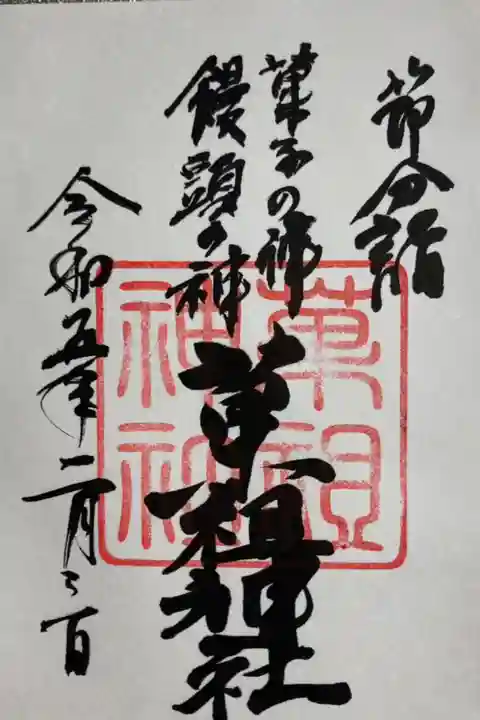 節分詣
菓子の神
饅頭の神
菓祖神社
令和五年二月三日
菓祖
神社